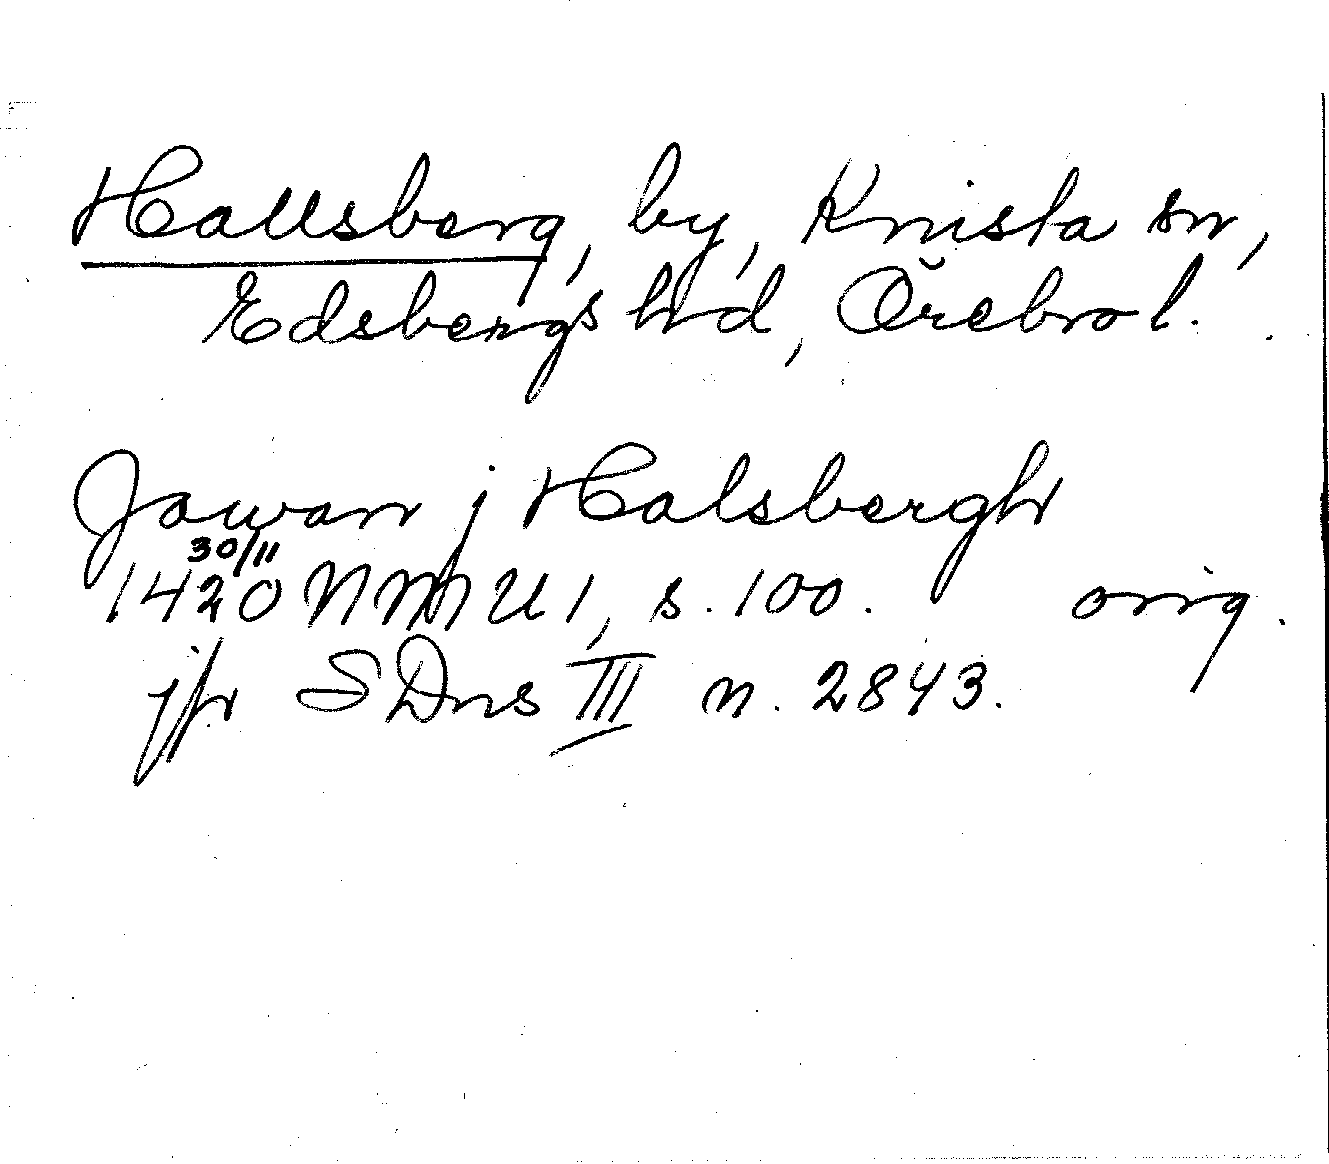 Hallsberg, by, Knista sn,
Edsbergs hd, Örebro l.
Jowan j Halsbergh
30/11
1420 NMU 1, s. 100. orig.
jfr SDns III n. 2843.